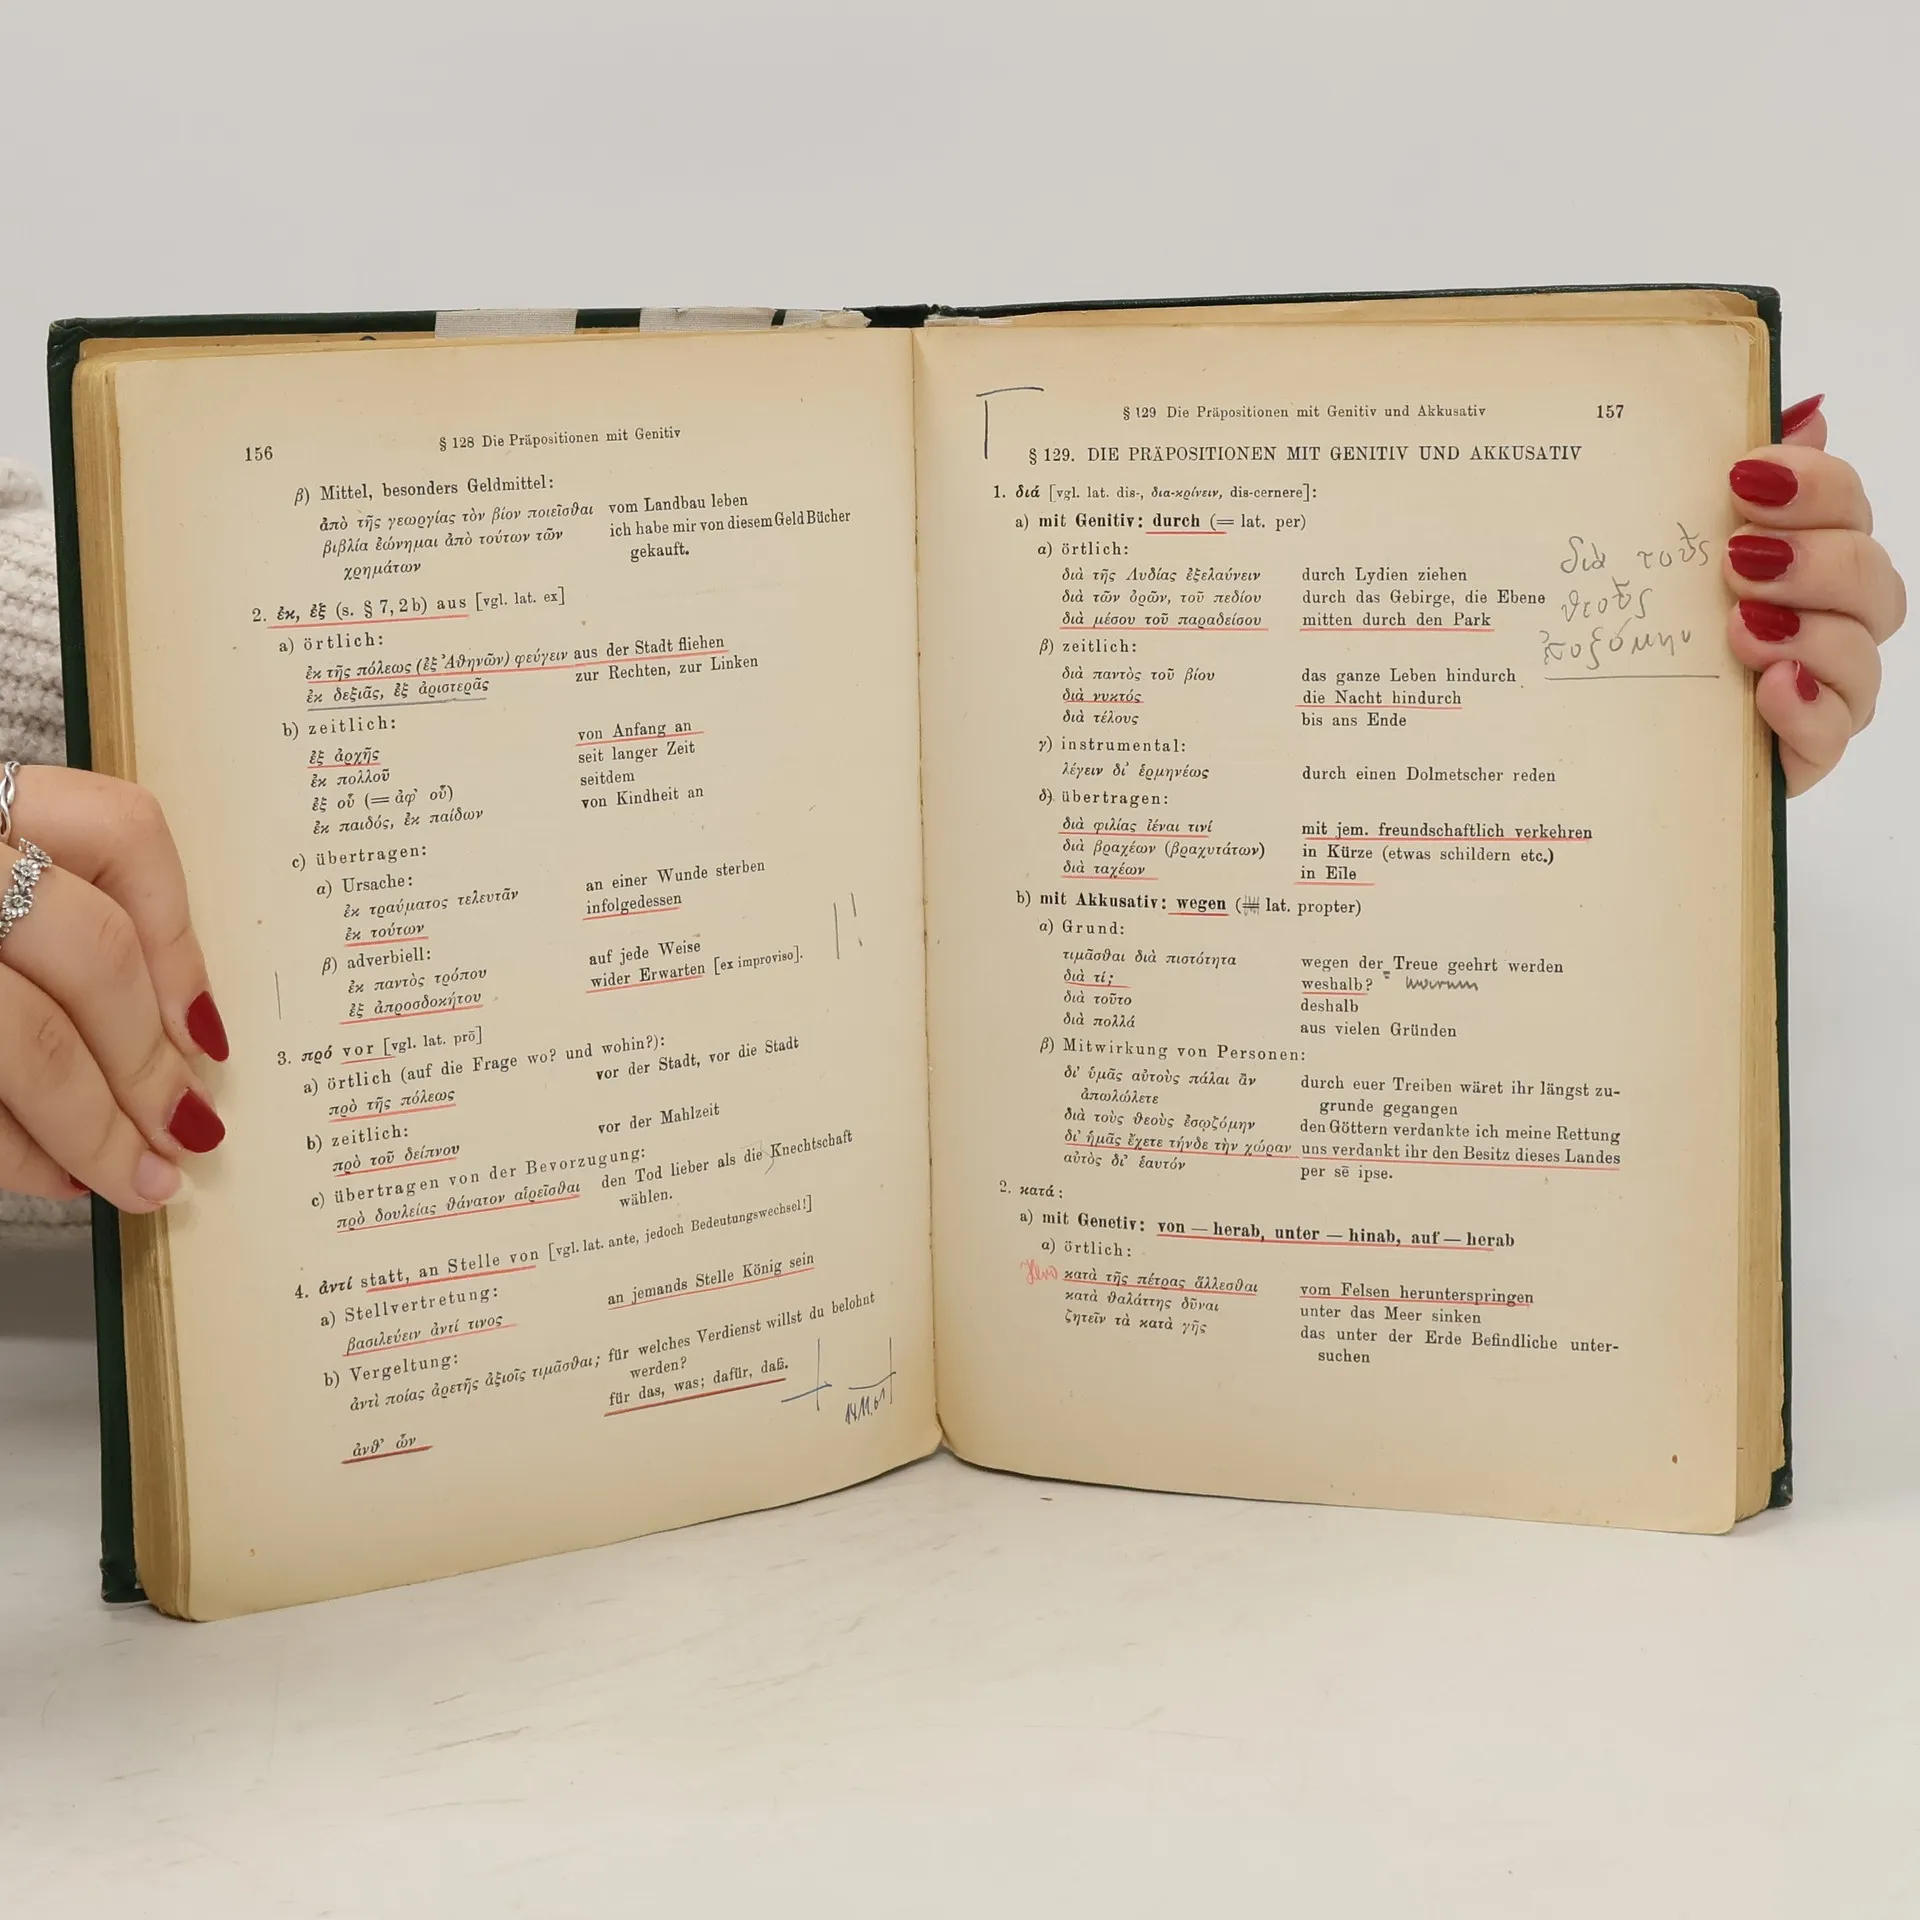 156
§ 128 Die Präpositionen mit Genitiv
β) Mittel, besonders Geldmittel:
ἀπὸ τῆς γεωργίας τὸν βίον ποιεῖσθαι vom Landbau leben
βιβλία ἐώνημαι ἀπὸ τούτων τῶν ich habe mir von diesem Geld Bücher
χρημάτων gekauft.
2. ἐκ, ἐξ (s. § 7, 2 b) aus [vgl. lat. ex]
a) örtlich:
ἐκ τῆς πόλεως (ἐξ Ἀθηνῶν) φεύγειν aus der Stadt fliehen
ἐκ δεξιᾶς, ἐξ ἀριστερᾶς zur Rechten, zur Linken
b) zeitlich:
ἐξ ἀρχῆς von Anfang an
ἐκ πολλοῦ seit langer Zeit
ἐξ οὗ (= ἀφ' οὗ) seitdem
ἐκ παιδός, ἐκ παίδων von Kindheit an
c) übertragen:
α) Ursache:
ἐκ τραύματος τελευτᾶν an einer Wunde sterben
ἐκ τούτων infolgedessen
β) adverbiell:
ἐκ παντὸς τρόπου auf jede Weise
ἐξ ἀπροσδοκήτου wider Erwarten [ex improviso].
3. πρό vor [vgl. lat. prō]
a) örtlich (auf die Frage wo? und wohin?):
πρὸ τῆς πόλεως vor der Stadt, vor die Stadt
b) zeitlich:
πρὸ τοῦ δείπνου vor der Mahlzeit
c) übertragen von der Bevorzugung:
πρὸ δουλείας θάνατον αἱρεῖσθαι den Tod lieber als die Knechtschaft
wählen.
4. ἀντί statt, an Stelle von [vgl. lat. ante, jedoch Bedeutungswechsel!]
a) Stellvertretung:
βασιλεύειν ἀντί τινος an jemands Stelle König sein
b) Vergeltung:
ἀντὶ ποίας ἀρετῆς ἀξιοῖς τιμᾶσθαι; für welches Verdienst willst du belohnt
werden?
ἀνθ' ὧν für das, was; dafür, daß.
14.11.61
§ 129 Die Präpositionen mit Genitiv und Akkusativ
157
§ 129. DIE PRÄPOSITIONEN MIT GENITIV UND AKKUSATIV
1. διά [vgl. lat. dis-, δια-κρίνειν, dis-cernere]:
a) mit Genitiv: durch (= lat. per)
α) örtlich:
διὰ τῆς Λυδίας ἐξελαύνειν durch Lydien ziehen
διὰ τῶν ὀρῶν, τοῦ πεδίου durch das Gebirge, die Ebene
διὰ μέσου τοῦ παραδείσου mitten durch den Park
διὰ τοὺς
θεοὺς
β) zeitlich:
διὰ παντὸς τοῦ βίου das ganze Leben hindurch
διὰ νυκτός die Nacht hindurch
διὰ τέλους bis ans Ende
γ) instrumental:
λέγειν δι' ἑρμηνέως durch einen Dolmetscher reden
δ) übertragen:
διὰ φιλίας ἰέναι τινί mit jem. freundschaftlich verkehren
διὰ βραχέων (βραχυτάτων) in Kürze (etwas schildern etc.)
διὰ ταχέων in Eile
b) mit Akkusativ: wegen (lat. propter)
α) Grund:
τιμᾶσθαι διὰ πιστότητα wegen der Treue geehrt werden
διὰ τί; weshalb? = warum
διὰ τοῦτο deshalb
διὰ πολλά aus vielen Gründen
β) Mitwirkung von Personen:
δι' ὑμᾶς αὐτοὺς πάλαι ἂν durch euer Treiben wäret ihr längst zu-
ἀπωλώλετε grunde gegangen
διὰ τοὺς θεοὺς ἐσῳζόμην den Göttern verdankte ich meine Rettung
δι' ἡμᾶς ἔχετε τήνδε τὴν χώραν uns verdankt ihr den Besitz dieses Landes
αὐτὸς δι' ἑαυτόν per sē ipse.
2. κατά:
a) mit Genetiv: von — herab, unter — hinab, auf — herab
α) örtlich:
κατὰ τῆς πέτρας ἅλλεσθαι vom Felsen herunterspringen
κατὰ θαλάττης δῦναι unter das Meer sinken
ζητεῖν τὰ κατὰ γῆς das unter der Erde Befindliche unter-
suchen